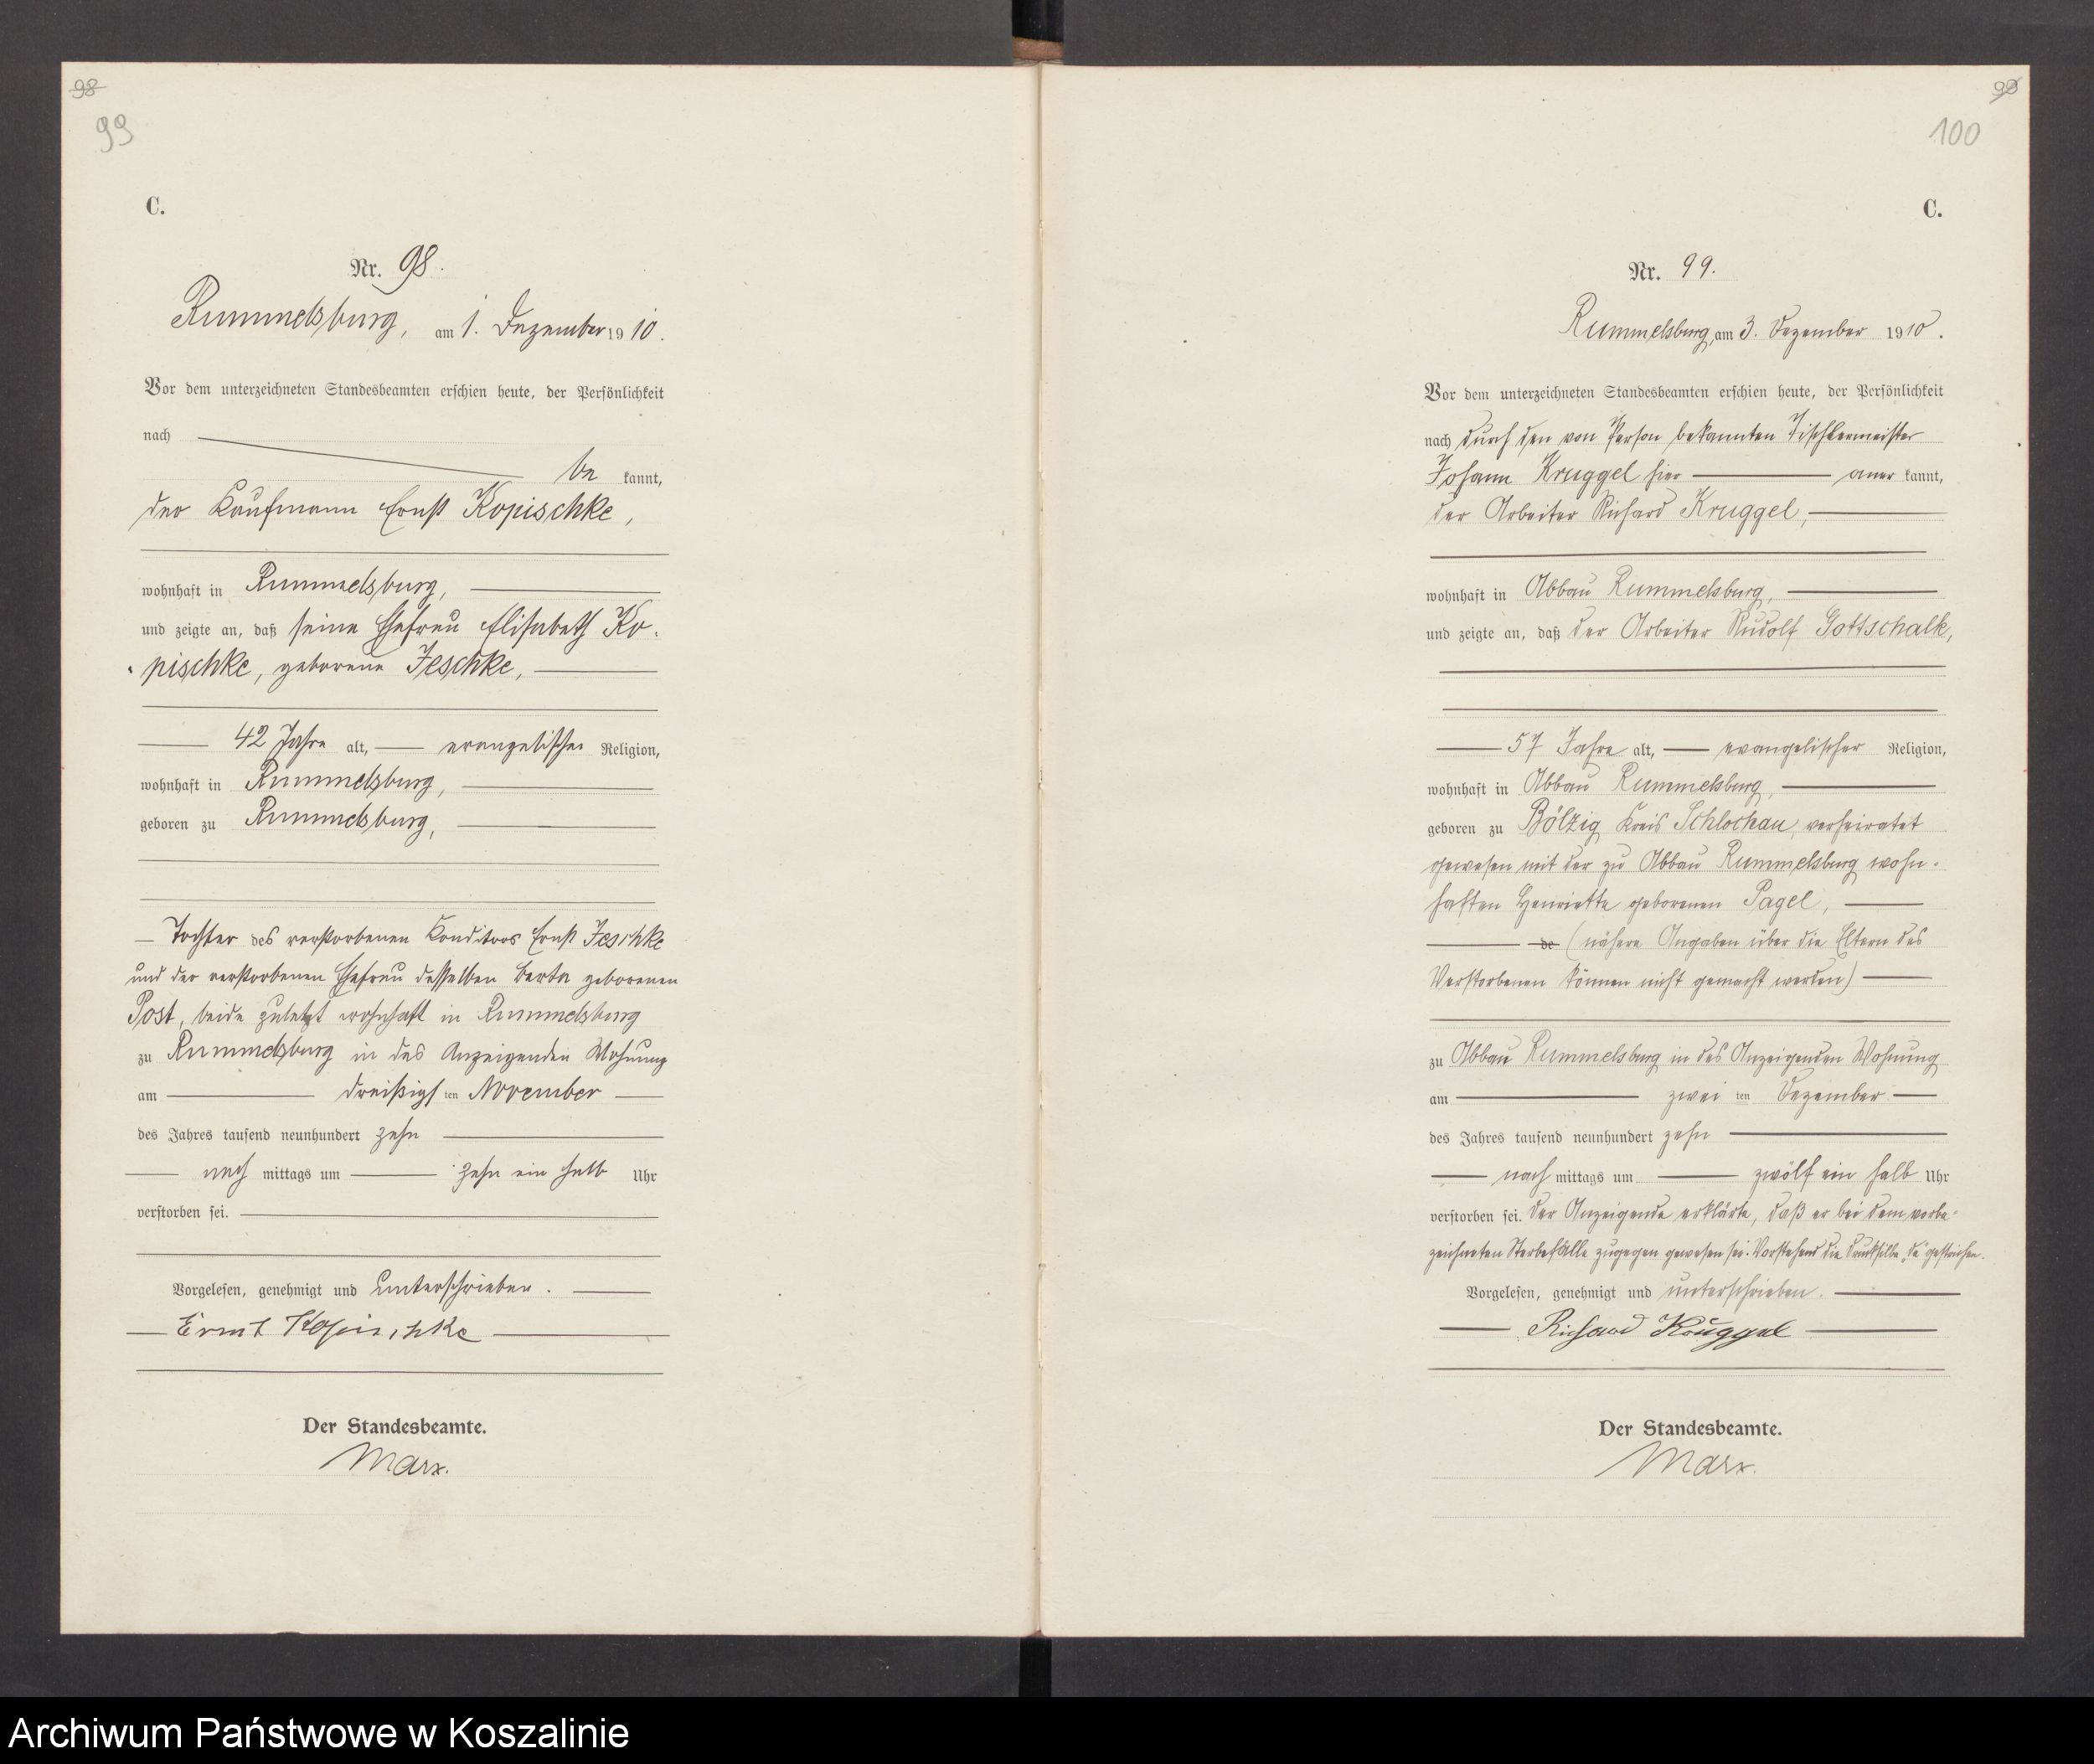 98
99
C.
Nr. 98.
Rummelsburg, am 1. Dezember 1910.
Vor dem unterzeichneten Standesbeamten erschien heute, der Persönlichkeit
nach
be kannt,
der Kaufmann Ernst Kopischke,
wohnhaft in Rummelsburg,
und zeigte an, daß seine Ehefrau Elisabeth Ko-
pischke, geborene Jeschke,
42 Jahre alt, evangelischer Religion,
wohnhaft in Rummelsburg,
geboren zu Rummelsburg,
Tochter des verstorbenen Konditors Ernst Jeschke
und der verstorbenen Ehefrau desselben Berta geborenen
Post, beide zuletzt wohnhaft in Rummelsburg
zu Rummelsburg in des Anzeigenden Wohnung
am dreißigsten November
des Jahres tausend neunhundert zehn
nach mittags um zehn ein halb Uhr
verstorben sei.
Vorgelesen, genehmigt und unterschrieben.
Ernst Kopischke
Der Standesbeamte.
Marx.
99
100
C.
Nr. 99.
Rummelsburg, am 3. Dezember 1910.
Vor dem unterzeichneten Standesbeamten erschien heute, der Persönlichkeit
nach durch den von Person bekannten Tischlermeister
Johann Kruggel hier aner kannt,
der Arbeiter Richard Kruggel,
wohnhaft in Abbau Rummelsburg,
und zeigte an, daß der Arbeiter Rudolf Gottschalk,
57 Jahre alt, evangelischer Religion,
wohnhaft in Abbau Rummelsburg,
geboren zu Bölzig Kreis Schlochau, verheiratet
gewesen mit der zu Abbau Rummelsburg wohn-
haften Henriette geborenen Pagel,
de (nähere Angaben über die Eltern des
Verstorbenen können nicht gemacht werden)
zu Abbau Rummelsburg in des Anzeigenden Wohnung
am zwei ten Dezember
des Jahres tausend neunhundert zehn
nach mittags um zwölf ein halb Uhr
verstorben sei. Der Anzeigende erklärte, daß er bei dem vorbe-
zeichneten Sterbefalle zugegen gewesen sei. Vorstehend die Drucksilbe „de“ gestrichen.
Vorgelesen, genehmigt und unterschrieben.
Richard Kruggel
Der Standesbeamte.
Marx.
Archiwum Państwowe w Koszalinie